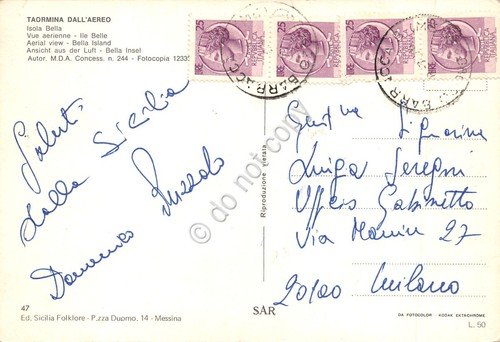 TAORMINA DALL'AEREO
Isola Bella
Vue aerienne - Ile Belle
Aerial view - Bella Island
Ansicht aus der Luft - Bella Insel
Autor. M.D.A. Concess. n. 244 - Fotocopia 12335
25
25
25
25
Saluti
dalla Sicilia
Domenico
Gent.ma Signorina
Luigia Seregni
Ufficio Gabinetto
Via Manin 27
20100 Milano
Riproduzione vietata
© do not copy
47
Ed. Sicilia Folklore - P.zza Duomo, 14 - Messina
SAR
DA FOTOCOLOR KODAK EKTACHROME
L. 50